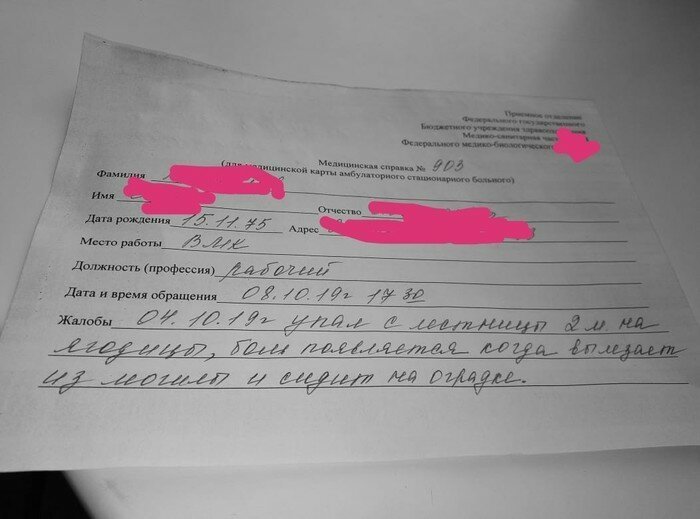 Приемное отделение
Федерального государственного
Бюджетного учреждения здравоохранения
Медико-санитарная часть
Федерального медико-биологического
Медицинская справка № 903
(для медицинской карты амбулаторного стационарного больного)
Фамилия
Имя Отчество
Дата рождения 15.11.75 Адрес
Место работы ВМК
Должность (профессия) рабочий
Дата и время обращения 08.10.19г 17 30
Жалобы 04.10.19г упал с лестницы 2 м. на
ягодицы, боль появляется когда вылезает
из могилы и сидит на оградке.